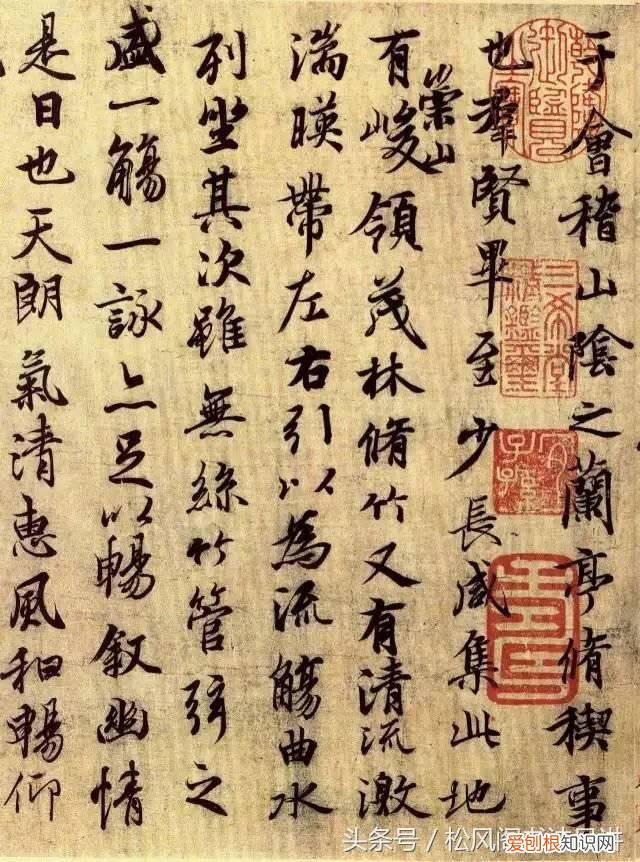 于會稽山陰之蘭亭脩稧事
也羣賢畢至少長咸集此地
有崇山峻領茂林脩竹又有清流激
湍暎帶左右引以為流觴曲水
列坐其次雖無絲竹管弦之
盛一觴一詠亦足以暢叙幽情
是日也天朗氣清惠風和暢仰
三希堂精鑑璽
宜子孫
头条号／松风阁
爱刨根知识网